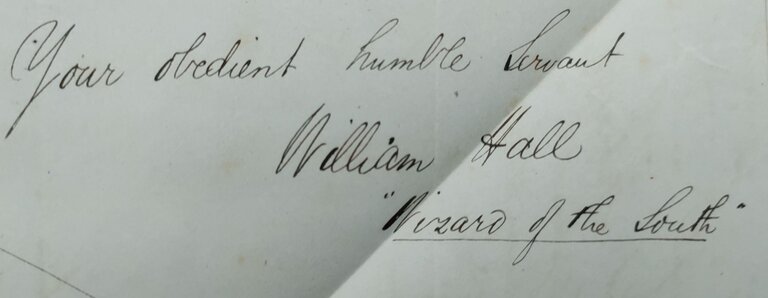 Your obedient humble Servant
William Hall
"Wizard of the South"